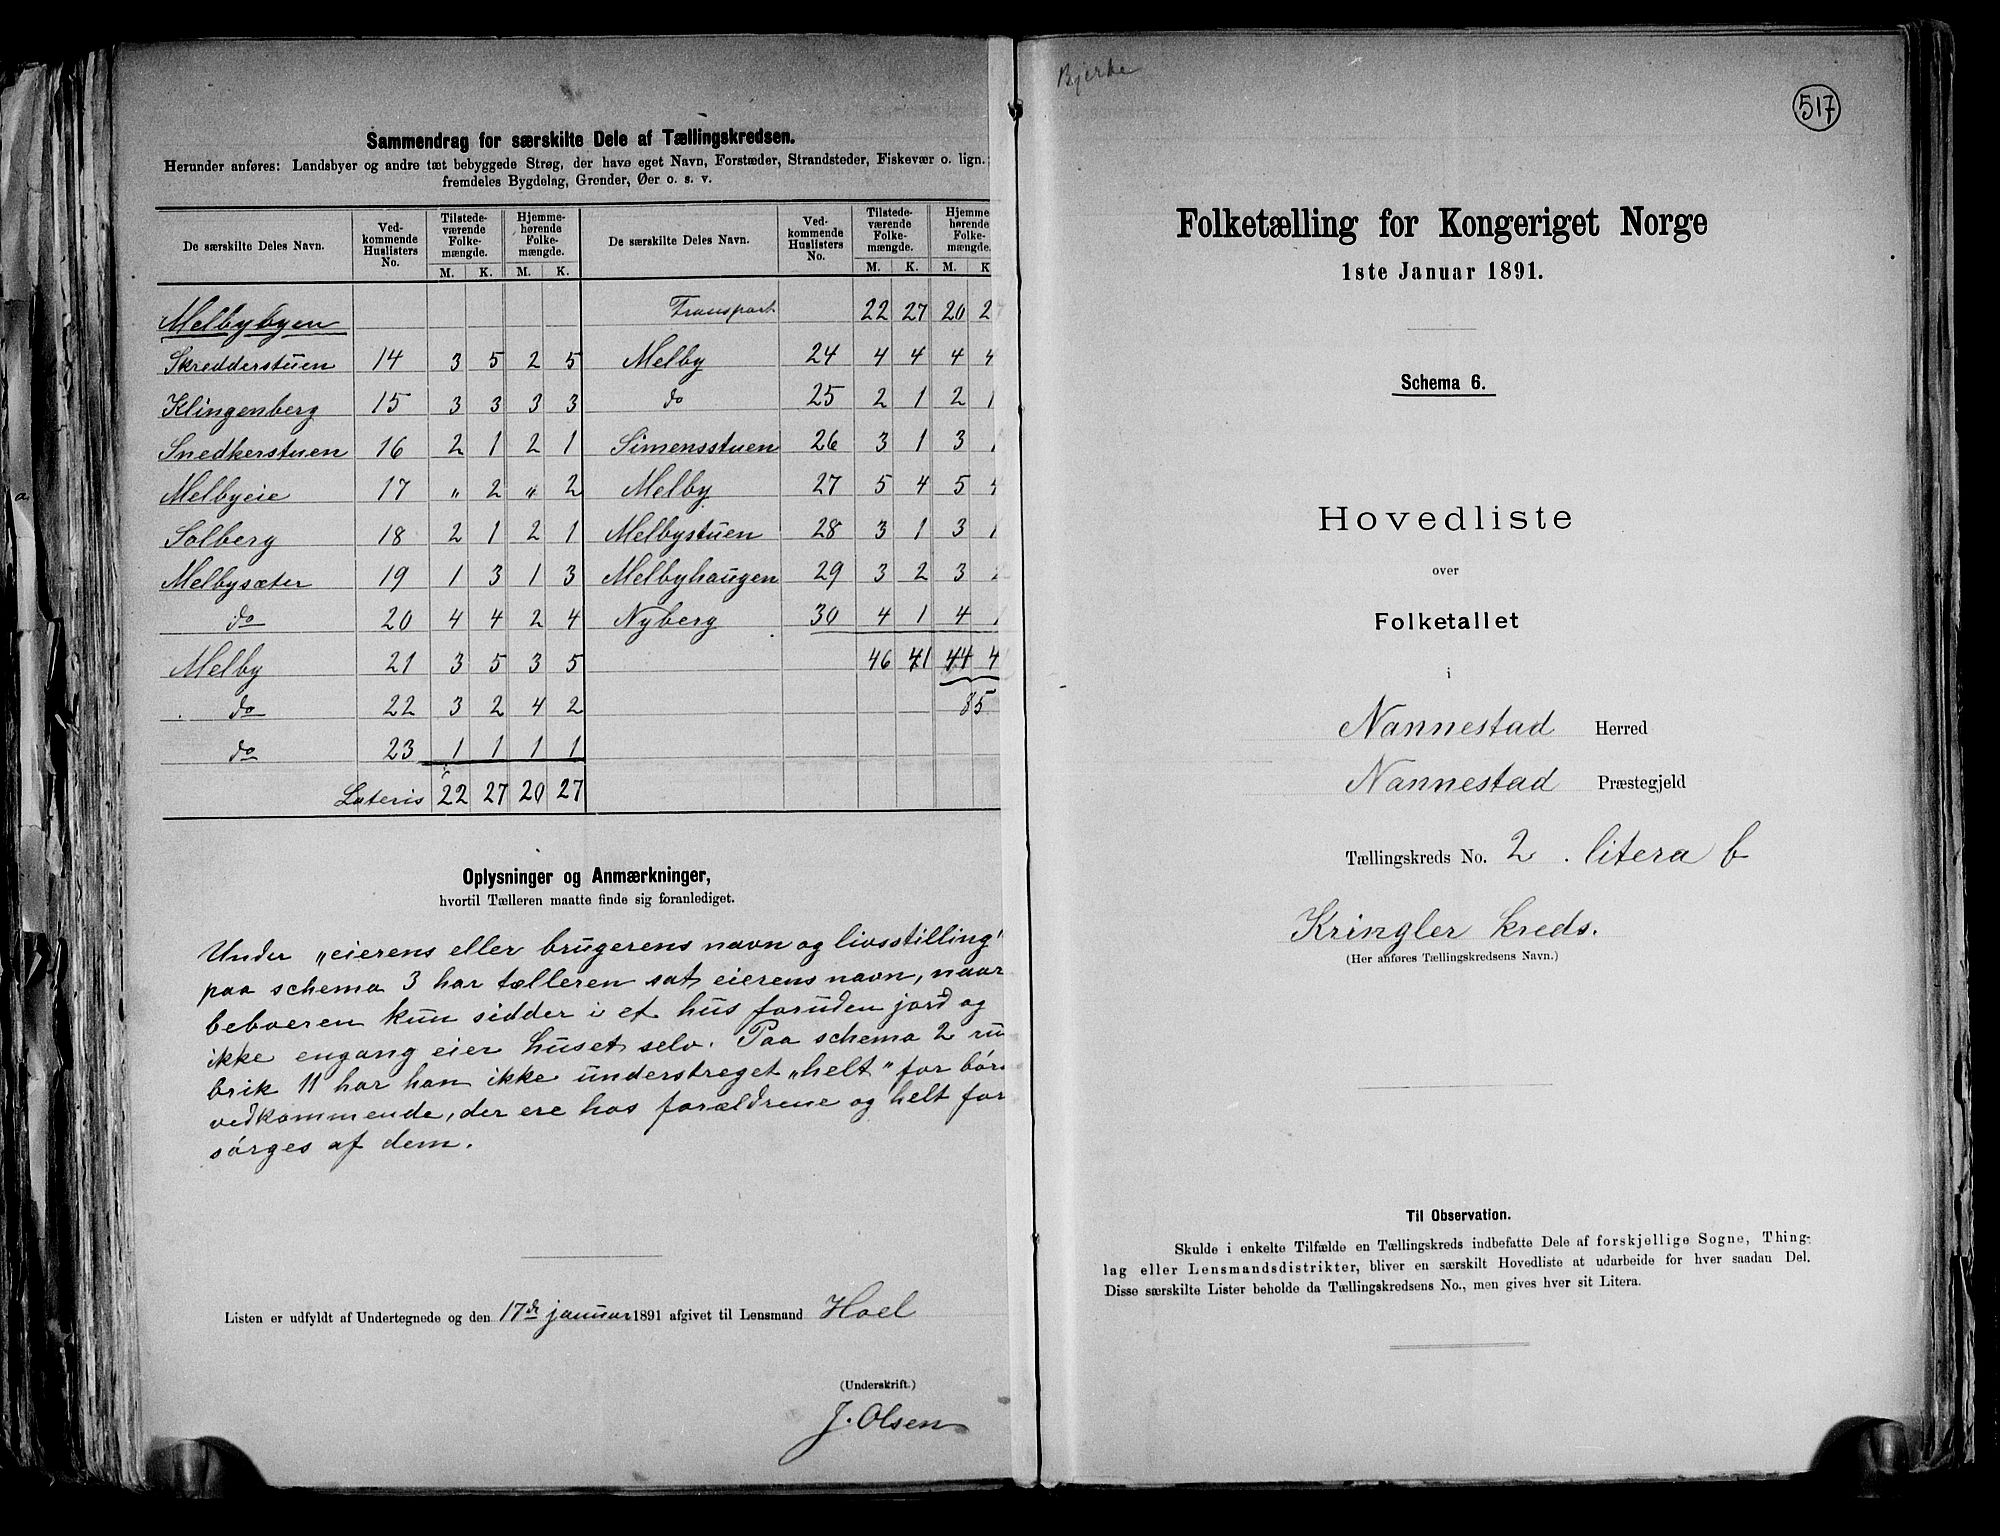 Sammendrag for særskilte Dele af Tællingskredsen.
Herunder anføres: Landsbyer og andre tæt bebyggede Strøg, der have eget Navn, Forstæder, Strandsteder, Fiskevær o. lign.;
fremdeles Bygdelag, Grender, Øer o. s. v.
De særskilte Deles Navn. Ved-kommende Huslisters No. Tilstede-værende Folke-mængde. Hjemme-hørende Folke-mængde. De særskilte Deles Navn. Ved-kommende Huslisters No. Tilstede-værende Folke-mængde. Hjemme-hørende Folke-mængde.
M. K. M. K. M. K. M. K
Melbybyen Transport 22 27 20 27
Skredderstuen 14 3 5 2 5 Melby 24 4 4 4 4
Klingenberg 15 3 3 3 3 do 25 2 1 2 1
Snedkerstuen 16 2 1 2 1 Simensstuen 26 3 1 3 1
Melbyeie 17 „ 2 „ 2 Melby 27 5 4 5 4
Solberg 18 2 1 2 1 Melbystuen 28 3 1 3 1
Melbysæter 19 1 3 1 3 Melbyhaugen 29 3 2 3 2
do 20 4 4 2 4 Nyberg 30 4 1 4 1
Melby 21 3 5 3 5 46 41 44 4
do 22 3 2 4 2 85
do 23 1 1 1 1
Lateris 22 27 20 27
Oplysninger og Anmærkninger,
hvortil Tælleren maatte finde sig foranlediget.
Under „eierens eller brugerens navn og livsstilling"
paa schema 3 har tælleren sat eierens navn, naar
beboeren kun sidder i et hus foruden jord og
ikke engang eier huset selv. Paa schema 2 ru
brik 11 har han ikke understreget „helt" for børn
vedkommende, der ere hos forældrene og helt for
sørges af dem.
Listen er udfyldt af Undertegnede og den 17de januar 1891 afgivet til Lensmand Hoel
(Underskrift.)
J. Olsen
Bjerke
517
Folketælling for Kongeriget Norge
1ste Januar 1891.
Schema 6.
Hovedliste
over
Folketallet
i
Nannestad Herred
Nannestad Præstegjeld
Tællingskreds No. 2 . litera b
Kringler kreds.
(Her anføres Tællingskredsens Navn.)
Til Observation.
Skulde i enkelte Tilfælde en Tællingskreds indbefatte Dele af forskjellige Sogne, Thing-
lag eller Lensmandsdistrikter, bliver en særskilt Hovedliste at udarbeide for hver saadan Del.
Disse særskilte Lister beholde da Tællingskredsens No., men gives hver sit Litera.